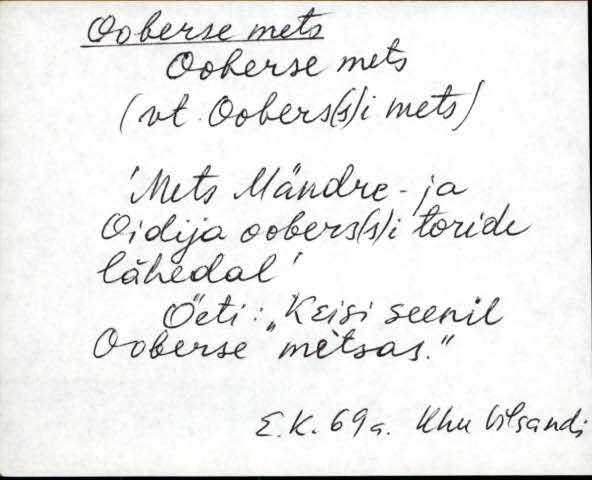 Ooberse mets
Ooberse mets
(vt. Oobers(s)i mets)
'Mets Mändre- ja
Oidija oobers(s)i toride
lähedal'
Öeti: „Keisi seenil
Ooberse mètsas."
E.K. 69a. Khu Vilsandi